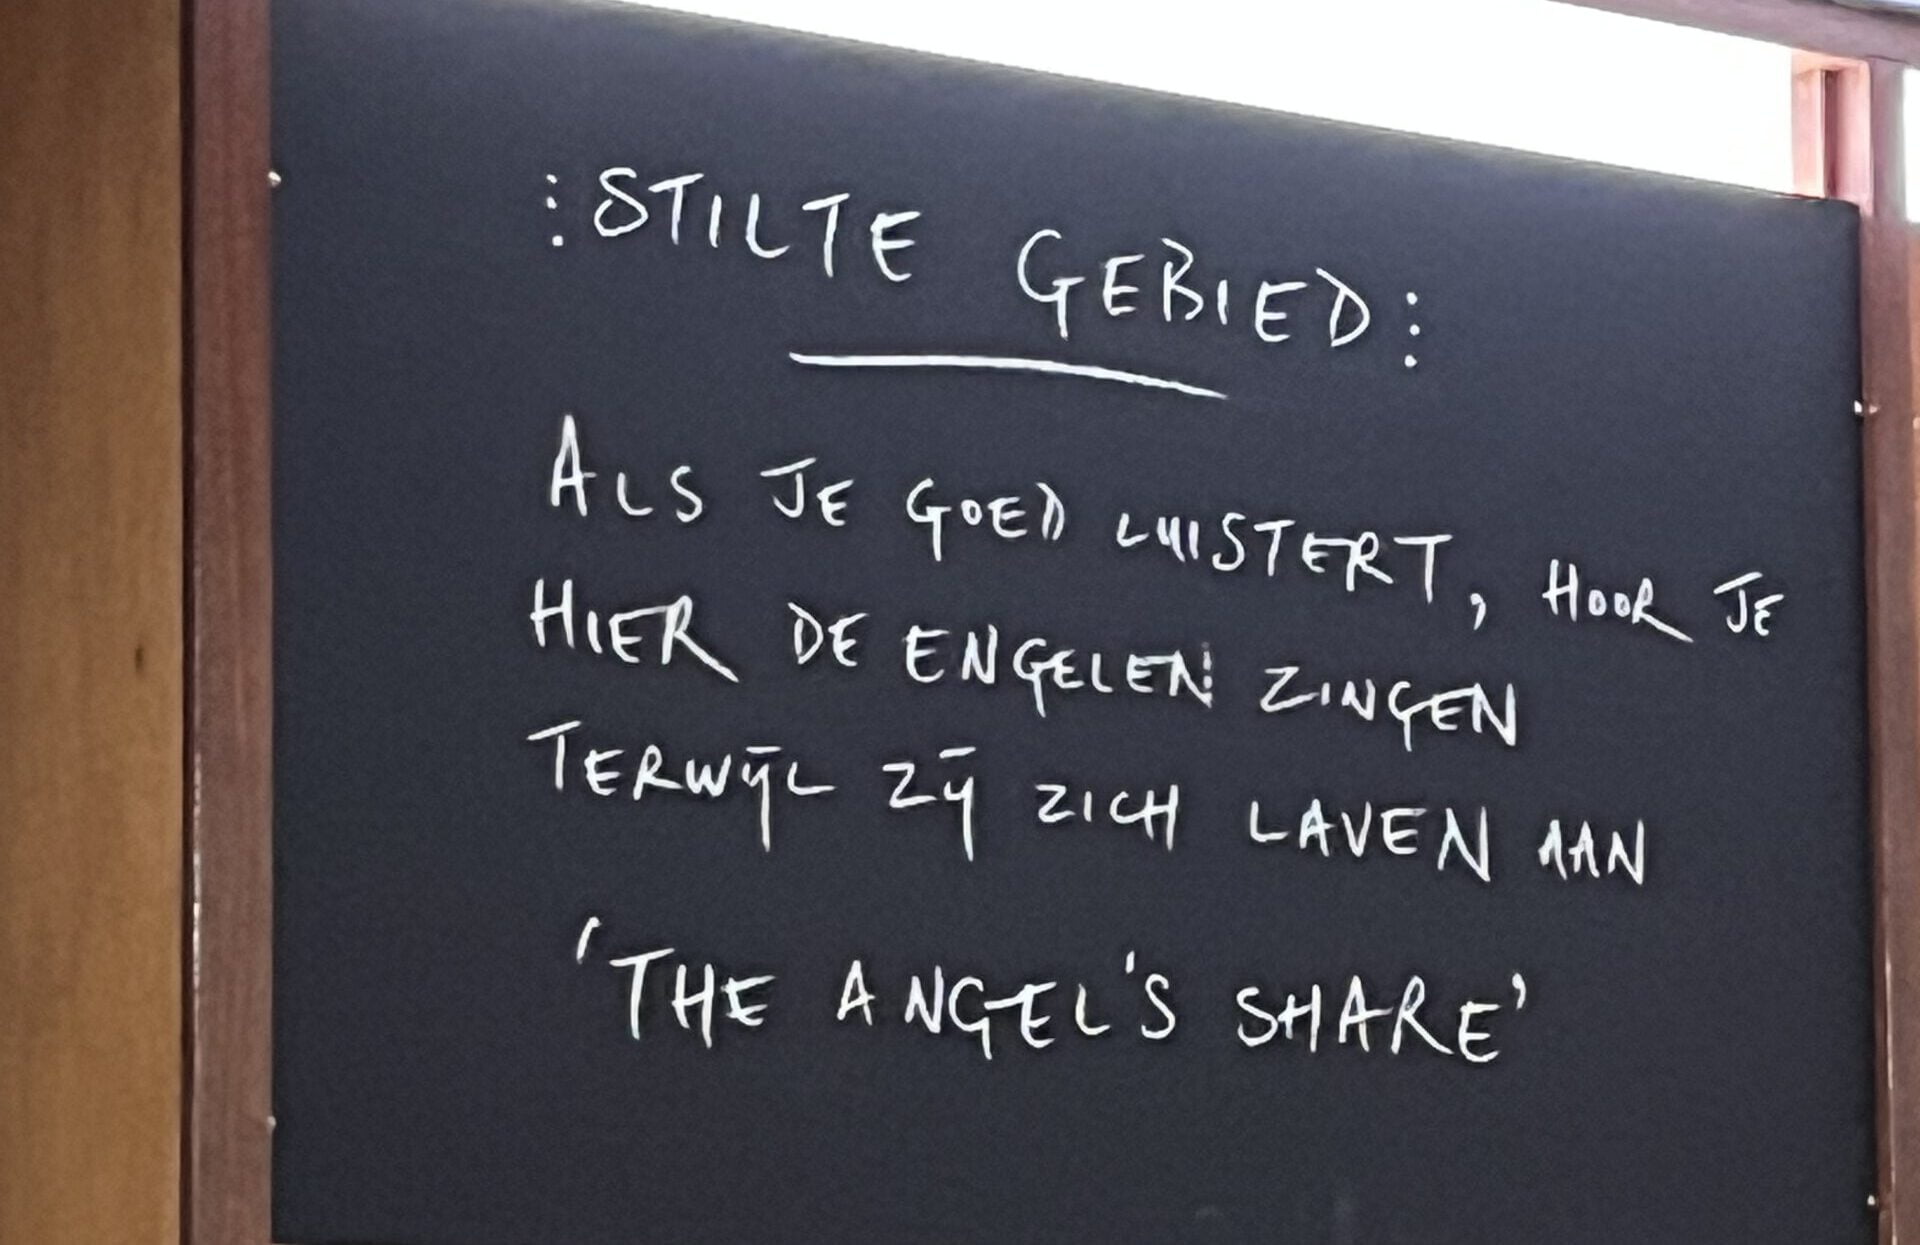 ⋮STILTE GEBIED⋮
ALS JE GOED LUISTERT, HOOR JE
HIER DE ENGELEN ZINGEN
TERWIJL ZIJ ZICH LAVEN AAN
'THE ANGEL'S SHARE'